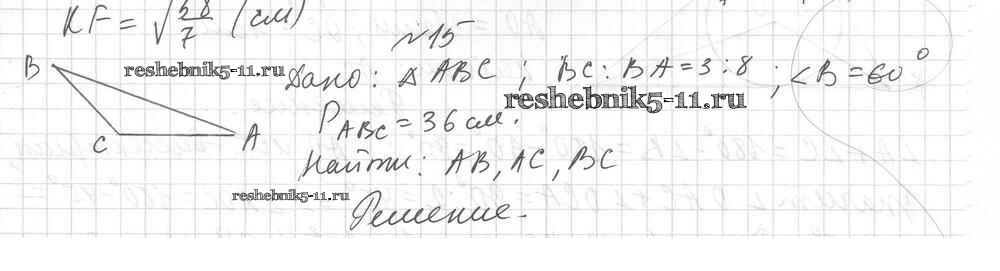 KF = √58/7 (см)
№15
Дано: △ ABC ; BC : BA = 3 : 8 ; ∠B = 60°
P ABC = 36 см.
Найти: AB, AC, BC
Решение.
B
C
A
reshebnik5-11.ru
reshebnik5-11.ru
reshebnik5-11.ru